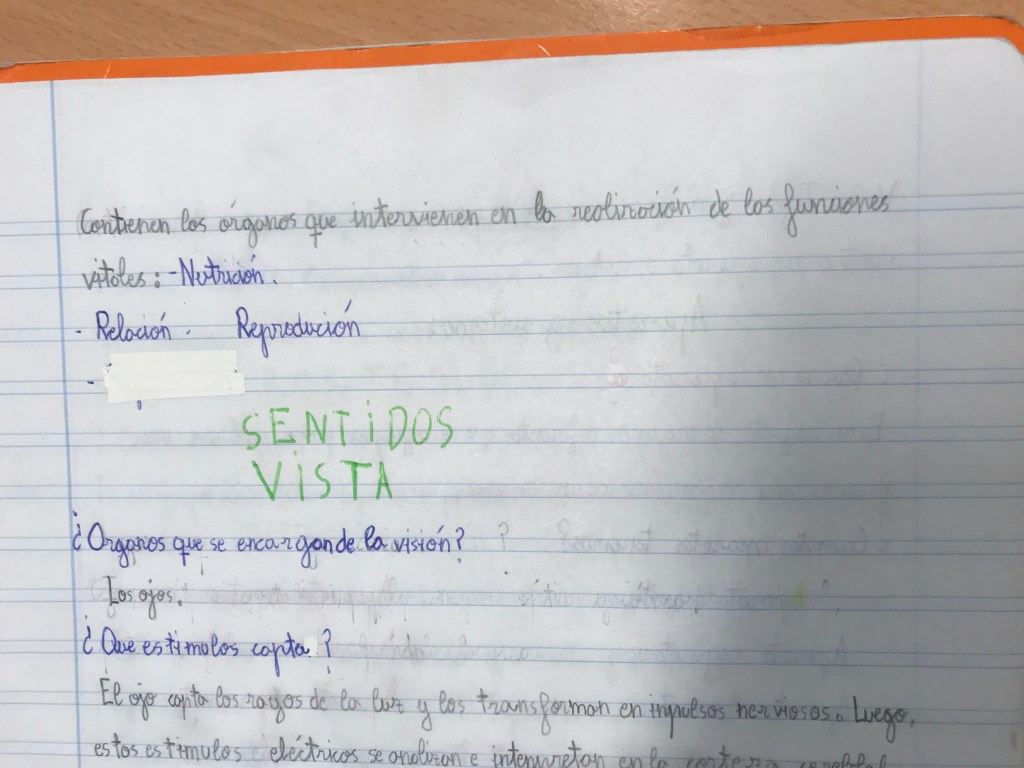 Contienen los órganos que intervienen en la realización de las funciones
vitales: - Nutrición.
- Relación. Reprodución
-
SENTIDOS
VISTA
¿Organos que se encargan de la visión?
Los ojos.
¿Que estimulos capta?
El ojo capta los rayos de la luz y los transforman en inpulsos nerviosos. Luego,
estos estimulos eléctricos se analizan e interpretan en la corteza